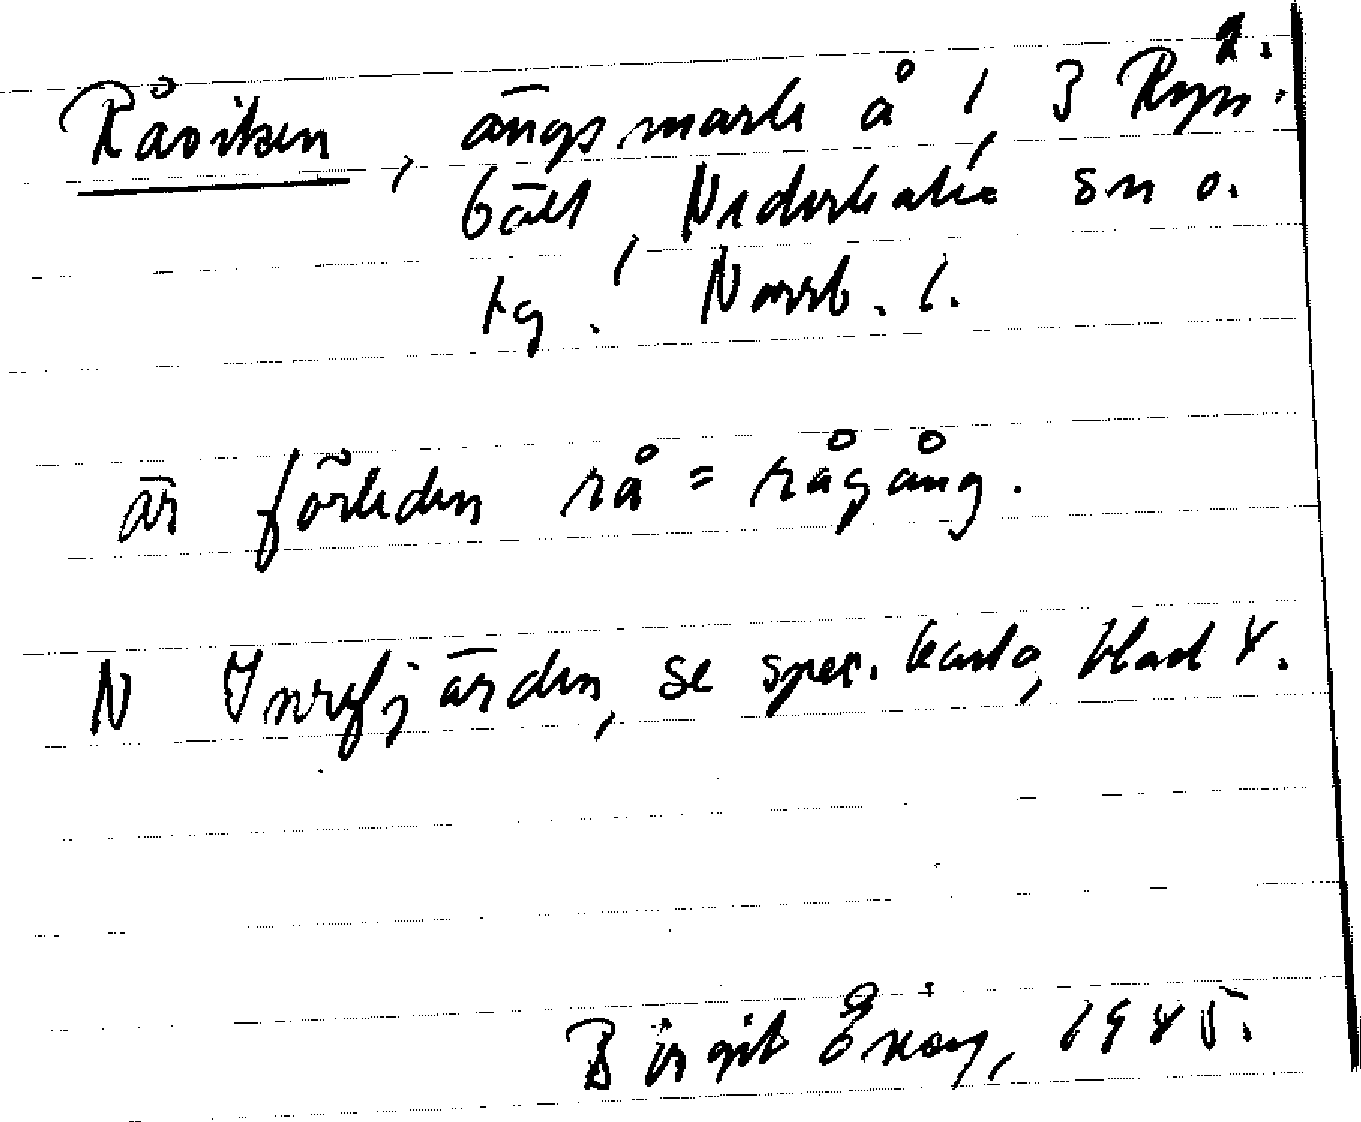 2.
Råviken, ängsmark å 1, 3 Ryss.
bält, Nederkalix sn o.
tg. Norrb. l.
är förleden rå = rågång.
N Inrefjärden, se spec. karta, blad 4.
Birgit 1945.